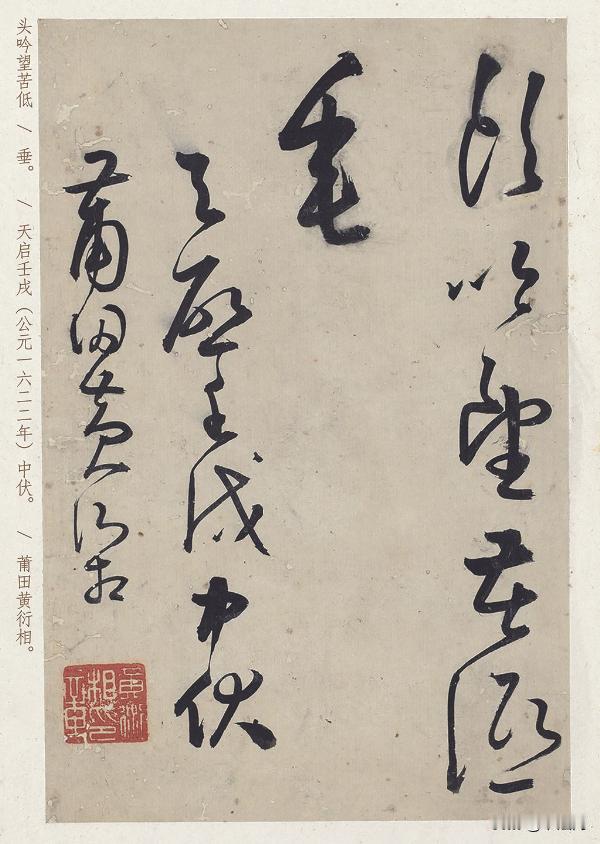 头吟望苦低
垂
天啟壬戌中伏
莆田黄衍相
头吟望苦低 / 垂。 / 天启壬戌（公元一六二二年）中伏。 / 莆田黄衍相。